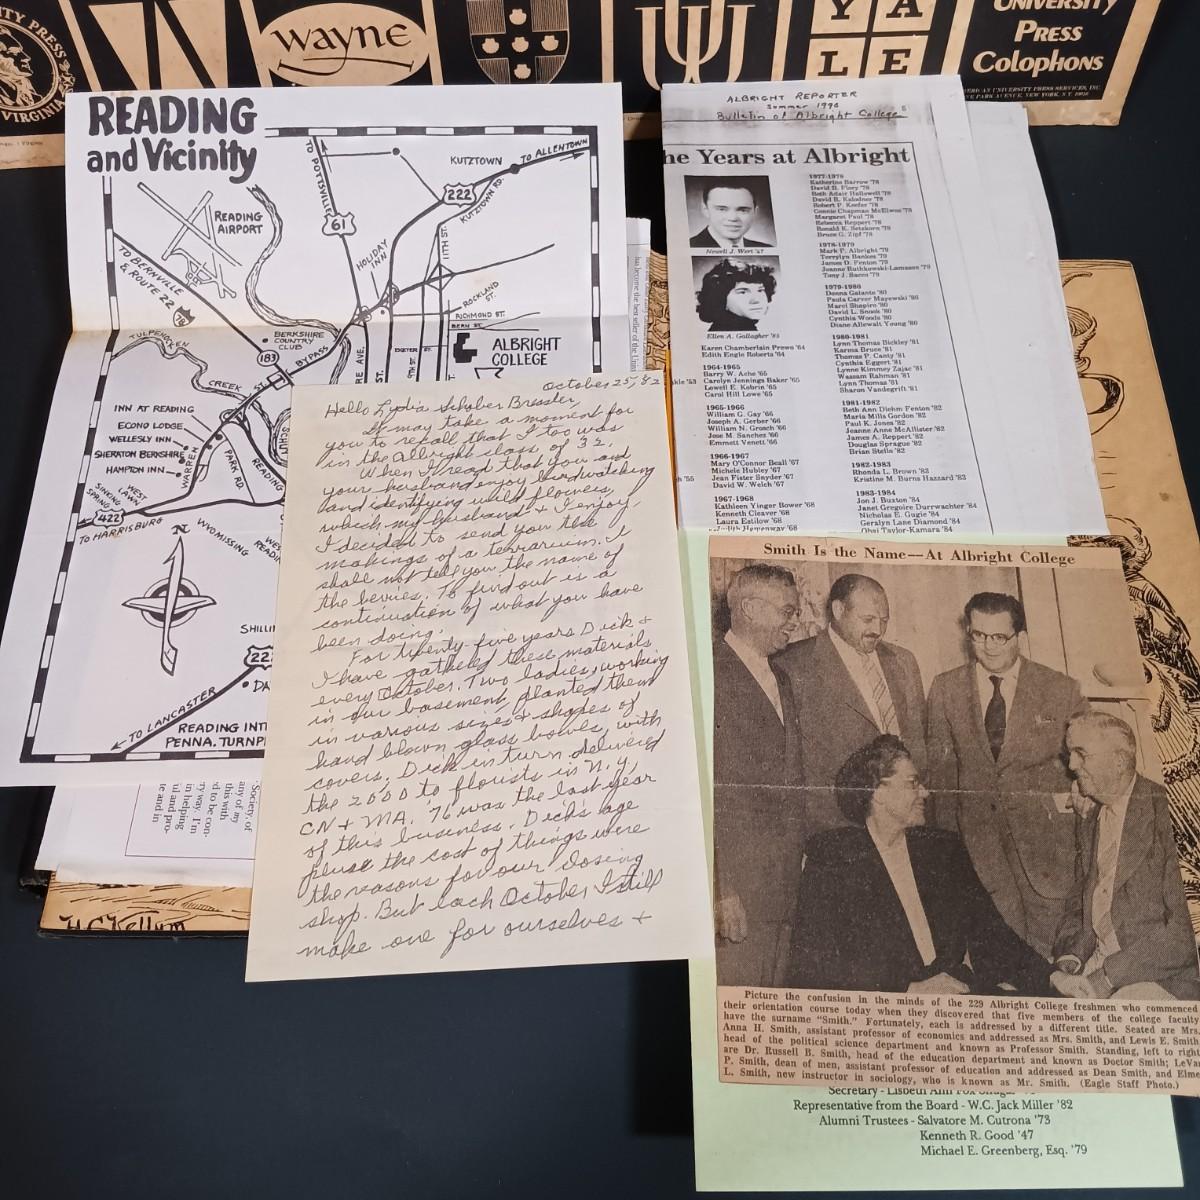 UNIVERSITY
PRESS
Colophons
ITY PRESS
VIRGINIA
wayne
YA
LE
READING
and Vicinity
READING
AIRPORT
TO POTTSVILLE
61
KUTZTOWN
TO ALLENTOWN
222
KUTZTOWN RD.
HOLIDAY
INN
11TH ST.
TO BERNVILLE
& ROUTE 22
ROCKLAND
ST.
RICHMOND ST.
BERN ST.
EXETER ST.
9TH ST.
ALBRIGHT
COLLEGE
TULPEHOCKEN
CREEK
BERKSHIRE
COUNTRY
CLUB
183
BYPASS
INN AT READING
ECONO LODGE
WELLESLY INN
SHERATON BERKSHIRE
HAMPTON INN
WARREN
PARK RD.
READING
WEST
LAWN
SINKING
SPRING
422
TO HARRISBURG
WYOMISSING
N
SHILLI
TO LANCASTER
READING INT
PENNA. TURNP
October 25, '82
Hello Lydia Schober Bressler,
It may take a moment for
you to recall that I too was
in the Albright class of '32.
When I read that you and
your husband enjoy birdwatching
and identifying wild flowers,
which my husband & I enjoy,
I decided to send you the
makings of a terrarium. I
shall not tell you the name of
the berries. To find out is a
continuation of what you have
been doing.
For twenty-five years Dick &
I have gathered these materials
every October. Two ladies, working
in our basement planted them
in various sizes & shapes of
hand blown glass bowls, with
covers. Dick in turn delivered
the 2000 to florists in N.Y,
CN & MA. '76 was the last year
of this business. Dick's age
pluse the cost of things were
the reasons for our closing
shop. But each October, I still
make one for ourselves &
H.C. Kellum
Society, of
any of my
this with
d to be con-
ry way. I'm
in helping
ul and pro-
te and in
ALBRIGHT REPORTER
Summer 1990
Bulletin of Albright College
he Years at Albright
Newell J. Wert '47
Ellen A. Gallagher '85
Karen Chamberlain Prowe '64
Edith Engle Roberts '64
1964-1965
Barry W. Ache '65
Carolyn Jennings Baker '65
Lowell E. Kebrin '65
Carol Hill Lowe '65
1965-1966
William G. Gay '66
Joseph A. Gerber '66
William N. Grosch '66
Jose M. Sanchez '66
Emmett Venett '66
1966-1967
Mary O'Connor Beall '67
Michele Hubley '67
Jean Fister Snyder '67
David W. Welch '67
1967-1968
Kathleen Yinger Bower '68
Kenneth Cleaver '68
Laura Estilow '68
1977-1978
Katherine Barrow '78
David B. Fiory '78
Beth Adair Hallowell '78
David B. Kalodner '78
Robert P. Keefer '78
Connie Chapman McElwee '78
Margaret Paul '78
Rebecca Reppert '78
Ronald K. Setzkorn '78
Bruce G. Zipf '78
1978-1979
Mark P. Albright '79
Terrylyn Bankes '79
James D. Fenton '79
Joanne Ruthkowski-Lamasse '79
Tony J. Sacco '79
1979-1980
Donna Galante '80
Paula Carver Mayewski '80
Marci Shapiro '80
David L. Snook '80
Cynthia Woods '80
Diane Allewalt Young '80
1980-1981
Lynn Thomas Bickley '81
Karma Bruce '81
Thomas P. Canty '81
Cynthia Eggert '81
Lynne Kimmey Zajac '81
Wassam Rahman '81
Lynn Thomas '81
Sharon Vandegrift '81
1981-1982
Beth Ann Diehm Fenton '82
Maria Mills Gordon '82
Paul K. Jones '82
Jeanne Anne McAllister '82
James A. Reppert '82
Douglas Sprague '82
Brian Stello '82
1982-1983
Rhonda L. Brown '83
Kristine M. Burns Hazzard '83
1983-1984
Jon J. Buxton '84
Janet Gregoire Durrwachter '84
Nicholas E. Gugie '84
Geralyn Lane Diamond '84
Obai Taylor-Kamara '84
Smith Is the Name—At Albright College
Picture the confusion in the minds of the 229 Albright College freshmen who commenced
their orientation course today when they discovered that five members of the college faculty
have the surname "Smith." Fortunately, each is addressed by a different title. Seated are Mrs.
Anna H. Smith, assistant professor of economics and addressed as Mrs. Smith, and Lewis E. Smith,
head of the political science department and known as Professor Smith. Standing, left to right
are Dr. Russell B. Smith, head of the education department and known as Doctor Smith; LeVan
P. Smith, dean of men, assistant professor of education and addressed as Dean Smith, and Elme
L. Smith, new instructor in sociology, who is known as Mr. Smith. (Eagle Staff Photo.)
Secretary - Lisbeth Ann Fox
Representative from the Board - W.C. Jack Miller '82
Alumni Trustees - Salvatore M. Cutrona '73
Kenneth R. Good '47
Michael E. Greenberg, Esq. '79